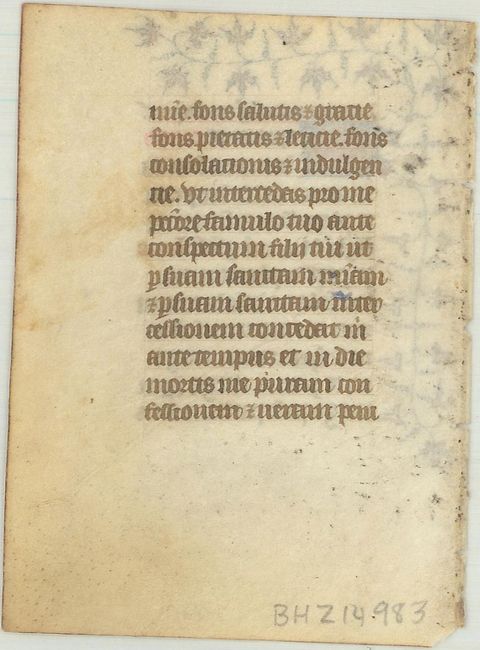 mīe. fons salutis ⁊ gratie
fons pietatis ⁊ leticie. fons
consolationis ⁊ indulgen
tie. Vt intercedas pro me
pctōre famulo tuo ante
conspectum filij tui ut
ꝑ suam sanctam mīam
⁊ ꝑ suam sanctam inter
cessionem concedat m̄
ante tempus et in die
mortis me puram con
fessionem ⁊ ueram peni
BHZ14983